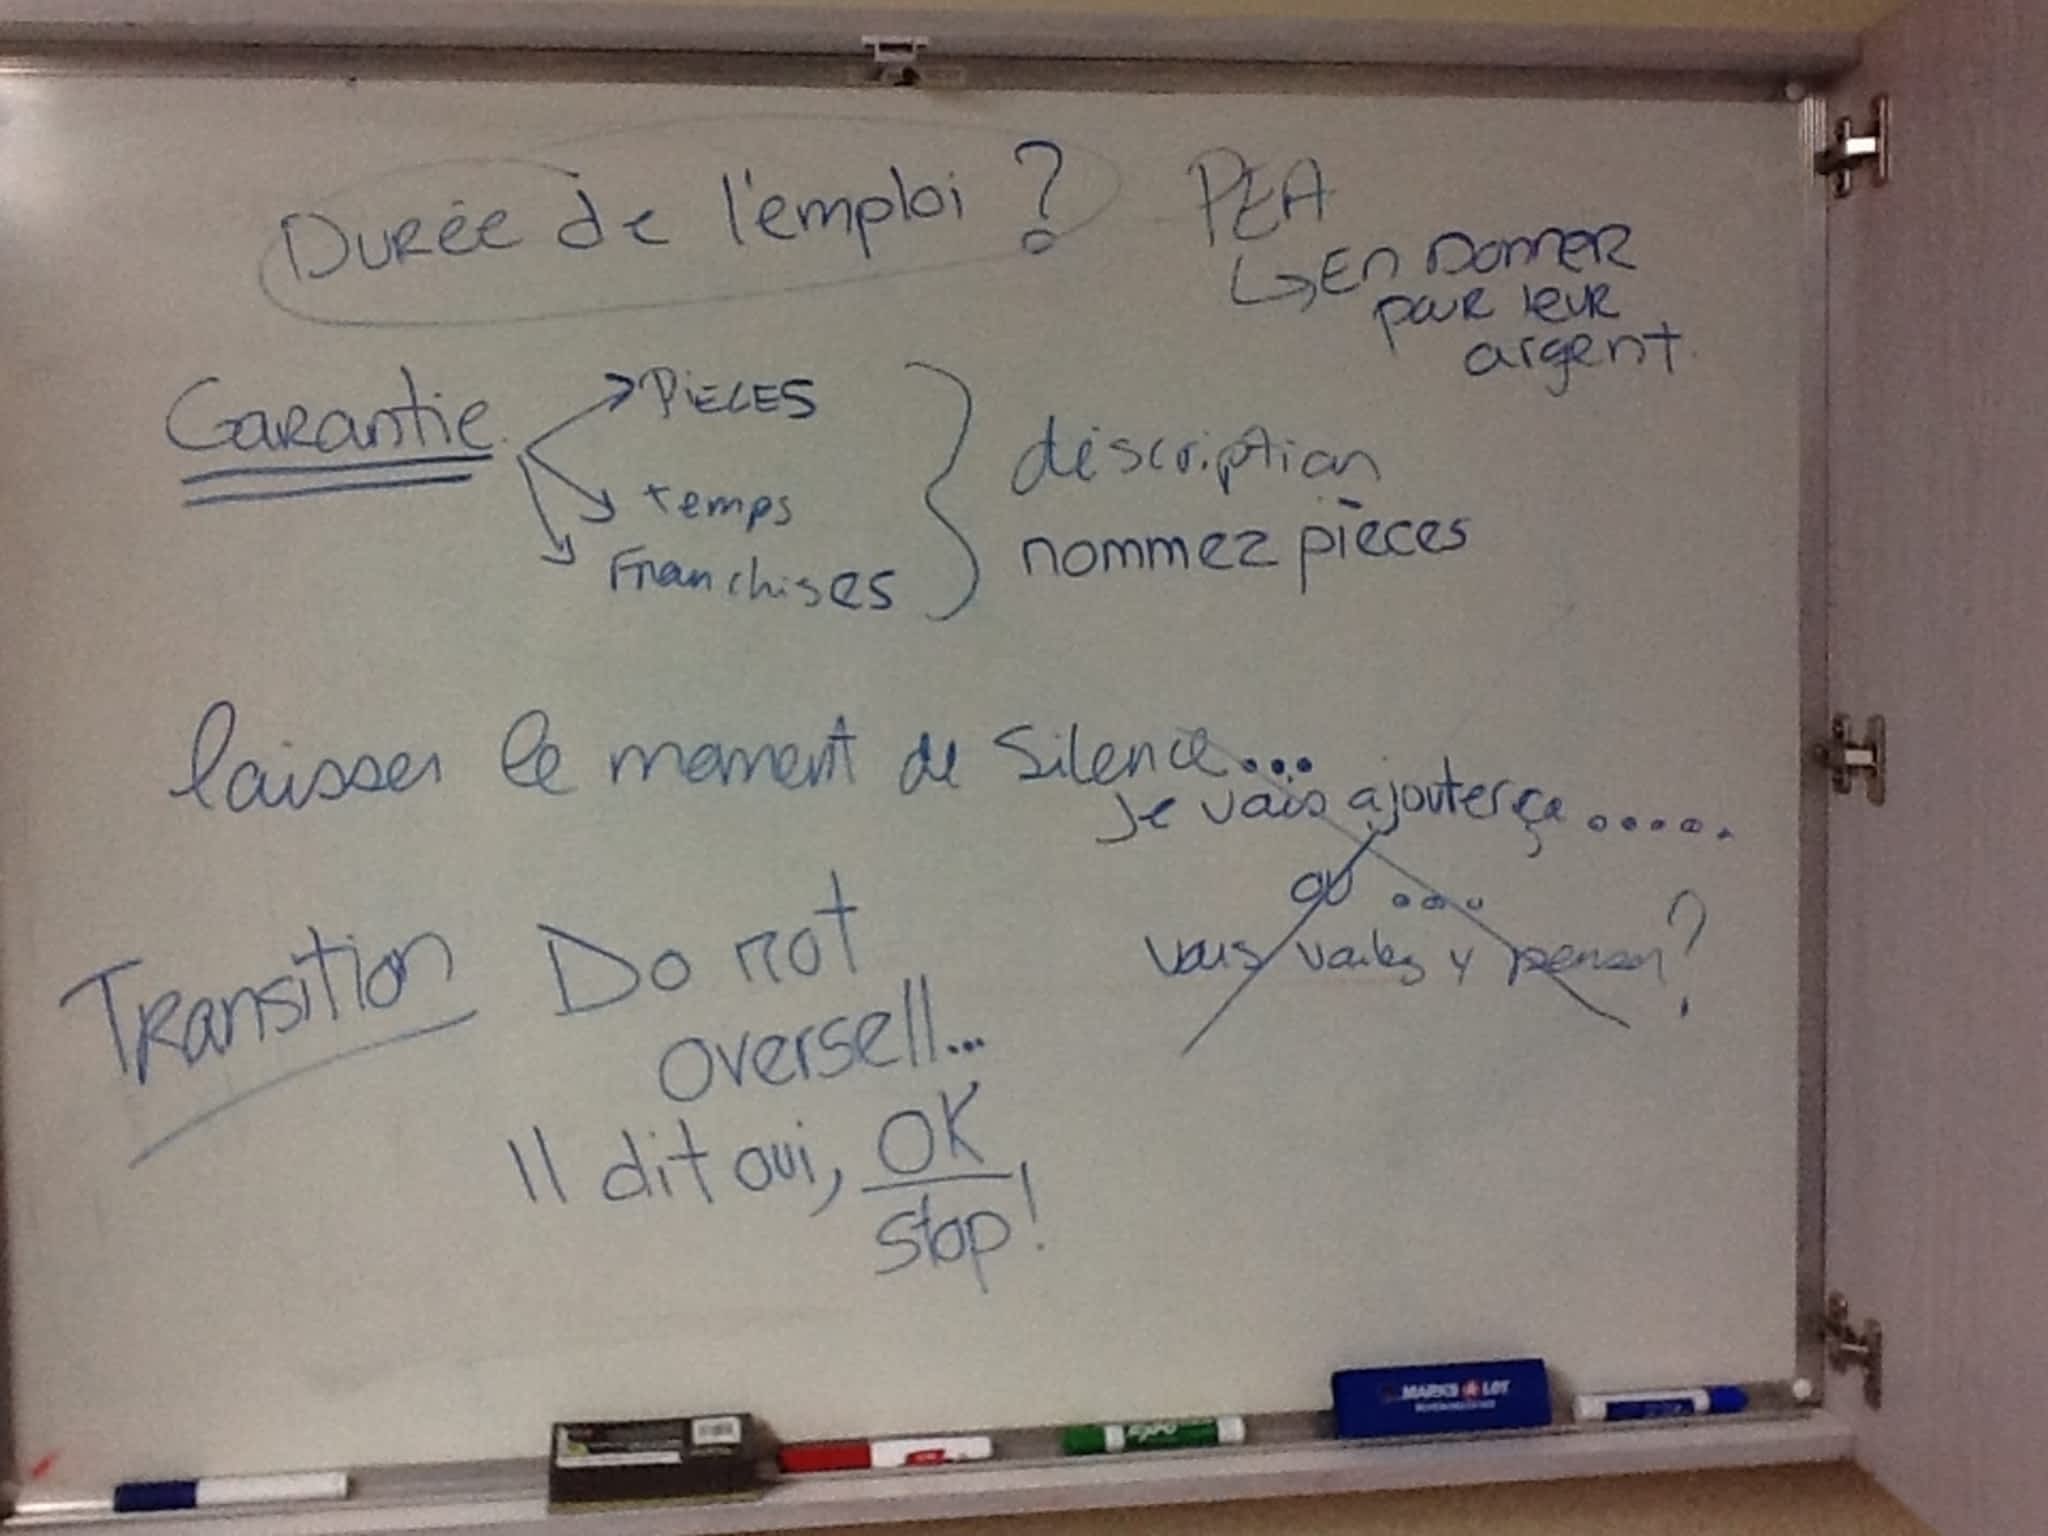 DURÉE de l'emploi ?
PEA
↳ En DONNER
pour leur
argent.
Garantie
PIECES
temps
Franchises
déscription
nommez pièces
laisser le moment de silence...
je vais ajouter ça.....
ou ...
vous voulez y penser?
Transition
Do not
oversell...
Il dit oui, OK
stop!
MARKS A LOT
EXPO